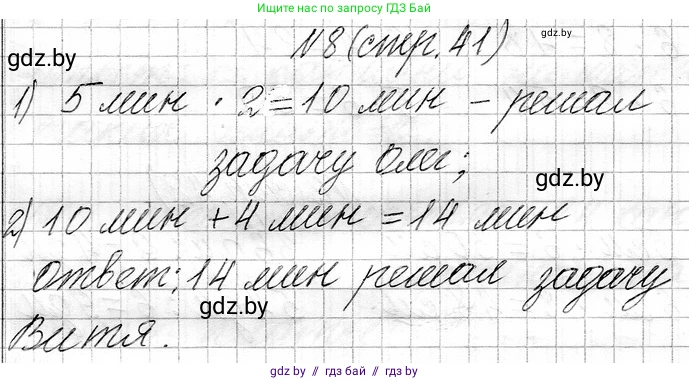 Ищите нас по запросу ГДЗ Бай
gdz.by
gdz.by
N8 (стр. 41)
1) 5 мин · 2 = 10 мин - решал
задачу Олег;
gdz.by
2) 10 мин + 4 мин = 14 мин
ответ: 14 мин решал задачу
gdz.by
Витя.
gdz.by // гдз бай // gdz.by